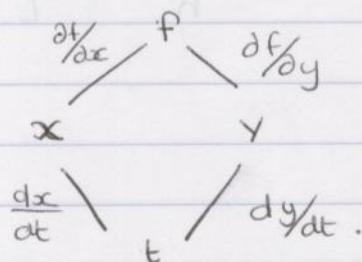 f
∂f/∂x ∂f/∂y
x y
dx/dt dy/dt .
t